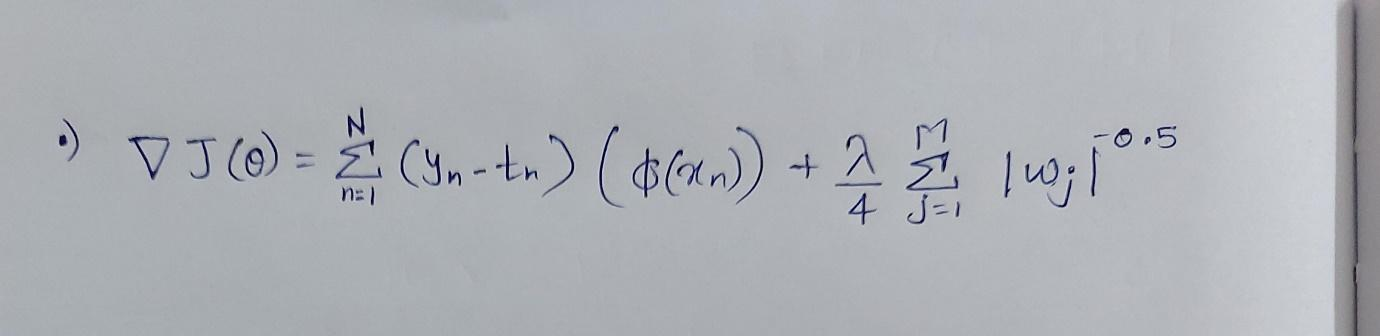 •) ∇ J(θ) = Σ_{n=1}^{N} (y_n - t_n) (ϕ(x_n)) + λ/4 Σ_{j=1}^{M} |w_j|^{-0.5}